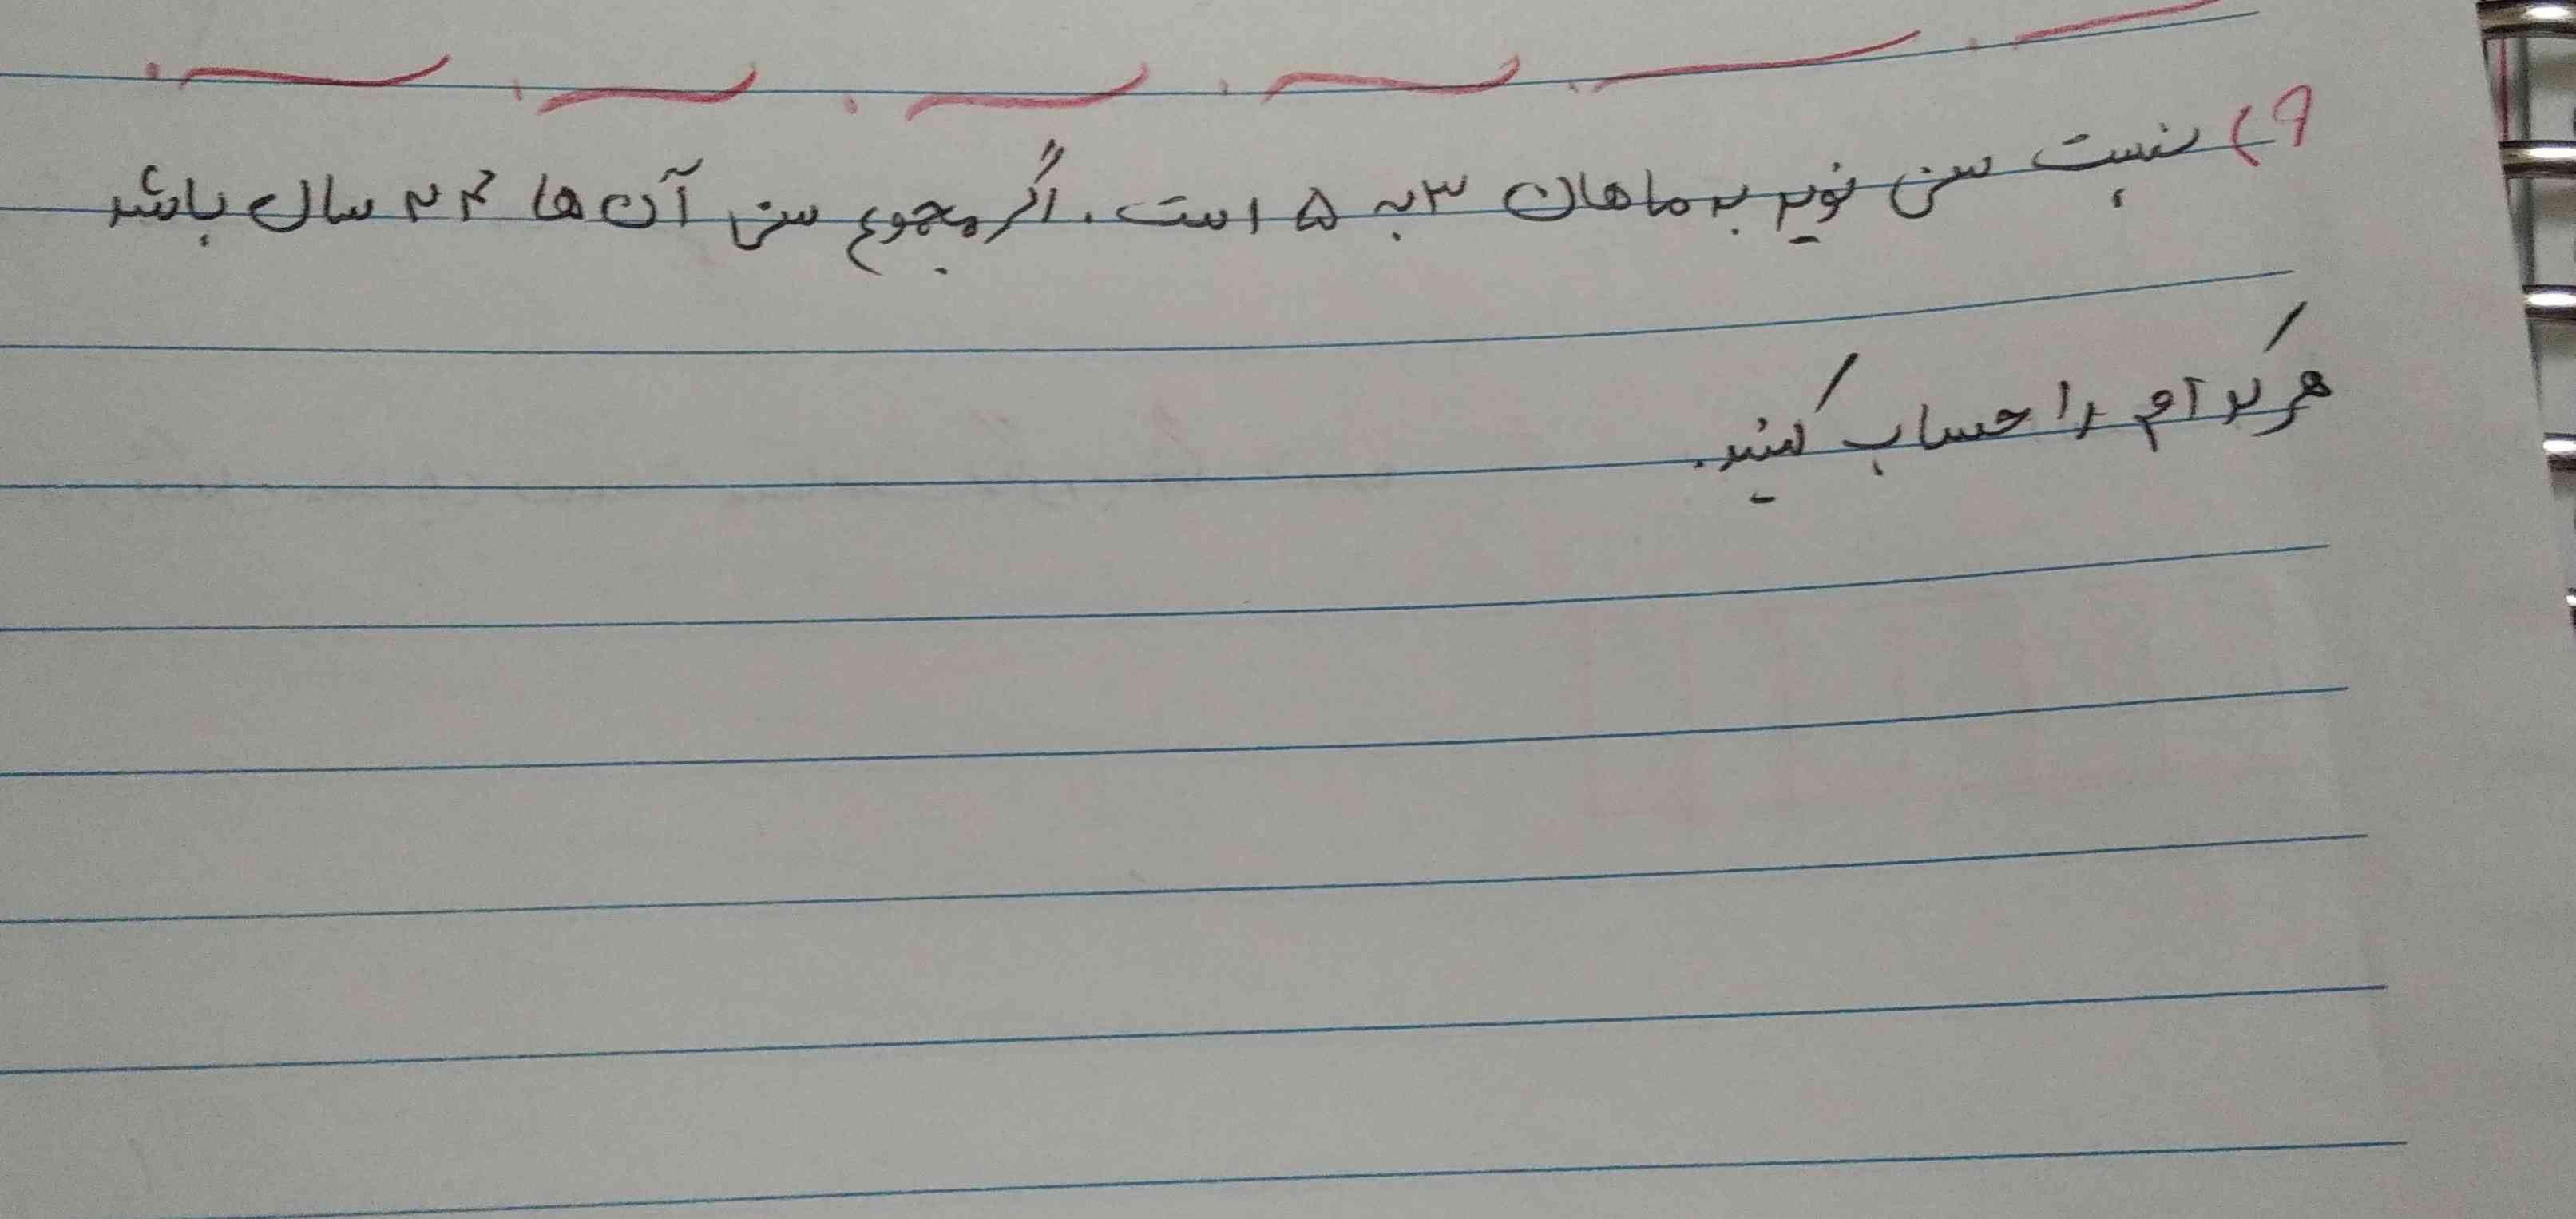 ۹) نسبت سن نوید به ماهان ۳ به ۵ است. اگر مجموع سن آن ها ۲۴ سال باشد
هر کدام را حساب کنید.